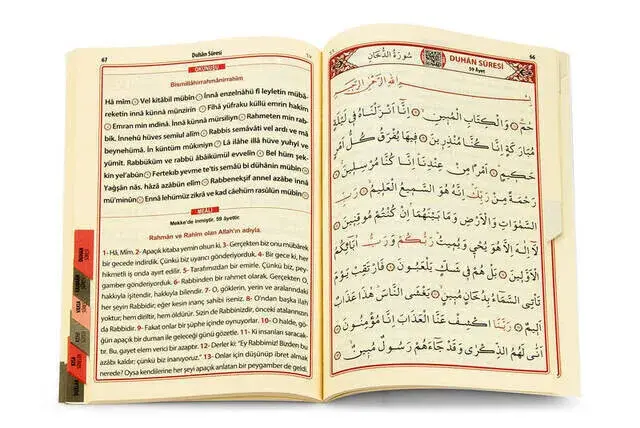 67
Duhân Sûresi
OKUNUŞU
Bismillâhirrahmânirrahîm
Hâ mîm Vel kitâbil mübîn İnnâ enzelnâhü fî leyletin mübâ-
reketin innâ künnâ münzirîn Fîhâ yüfraku küllü emrin hakîm
Emran min ındinâ. İnnâ künnâ mürsilîyn Rahmeten min rab-
bik. İnnehû hüves semîul alîm Rabbis semâvâti vel ardı ve mâ
beynehümâ. İn küntüm mûkıniyn Lâ ilâhe illâ hüve yuhyî ve
yümît. Rabbüküm ve rabbü âbâikümül evvelîn Bel hüm şek-
kin yel'abûn Fertekıb yevme te'tis semâü bi dühânin mübîn
Yağşân nâs. hâzâ azâbün elîm Rabbenekşif annel azâbe innâ
mü'minûn Ennâ lehümüz zikrâ ve kad câehüm rasûlün mübîn
MEÂLİ
Mekke'de inmiştir. 59 âyettir.
Rahmân ve Rahîm olan Allah'ın adıyla.
1- Hâ, Mîm. 2- Apaçık kitaba yemin olsun ki, 3- Gerçekten biz onu mübârek
bir gecede indirdik. Çünkü biz uyarıcı gönderiyorduk. 4- Bir gece ki, her
hikmetli iş onda ayırt edilir. 5- Tarafımızdan bir emirle. Çünkü biz, pey-
gamber gönderiyorduk. 6- Rabbinden bir rahmet olarak. Gerçekten O,
hakkıyla işitendir, hakkıyla bilendir. 7- O, göklerin, yerin ve aralarındaki
her şeyin Rabbidir; eğer kesin inanç sahibi iseniz. 8- O'ndan başka ilah
yoktur; hem diriltir, hem öldürür. Sizin de Rabbinizdir, önceki atalarınızın
da Rabbidir. 9- Fakat onlar bir şüphe içinde oynuyorlar. 10- O halde, gö-
ğün apaçık bir duman ile geleceği günü gözetle. 11- Ki insanları saracak-
tır. Bu, gayet elem verici bir azaptır. 12- Derler ki: "Ey Rabbimiz! Bizden bu
azâbı kaldır; çünkü biz inanıyoruz." 13- Onlar için düşünüp ibret almak
nerede? Oysa kendilerine her şeyi apaçık anlatan bir peygamber de geldi.
66
سُورَةُ الدُّخَانِ
DUHÂN SÛRESİ
59 Âyet
بِسْمِ اللهِ الرَّحْمٰنِ الرَّحِيمِ
حٰمٓ وَالْكِتَابِ الْمُبِينِ اِنَّٓا اَنْزَلْنَاهُ فِى لَيْلَةٍ
مُبَارَكَةٍ اِنَّا كُنَّا مُنْذِرِينَ فِيهَا يُفْرَقُ كُلُّ اَمْرٍ
حَكِيمٍ اَمْرًا مِنْ عِنْدِنَا اِنَّا كُنَّا مُرْسِلِينَ
رَحْمَةً مِنْ رَبِّكَ اِنَّهُ هُوَ السَّمِيعُ الْعَلِيمُ رَبِّ
السَّمٰوَاتِ وَالْاَرْضِ وَمَا بَيْنَهُمَا اِنْ كُنْتُمْ مُوقِنِينَ
لَٓا اِلٰهَ اِلَّا هُوَ يُحْيِى وَيُمِيتُ رَبُّكُمْ وَرَبُّ اٰبَٓائِكُمُ
الْاَوَّلِينَ بَلْ هُمْ فِى شَكٍّ يَلْعَبُونَ فَارْتَقِبْ يَوْمَ
تَاْتِى السَّمَٓاءُ بِدُخَانٍ مُبِينٍ يَغْشَى النَّاسَ هٰذَا عَذَابٌ
اَلِيمٌ رَبَّنَا اكْشِفْ عَنَّا الْعَذَابَ اِنَّا مُؤْمِنُونَ
اَنّٰى لَهُمُ الذِّكْرٰى وَقَدْ جَٓاءَهُمْ رَسُولٌ مُبِينٌ